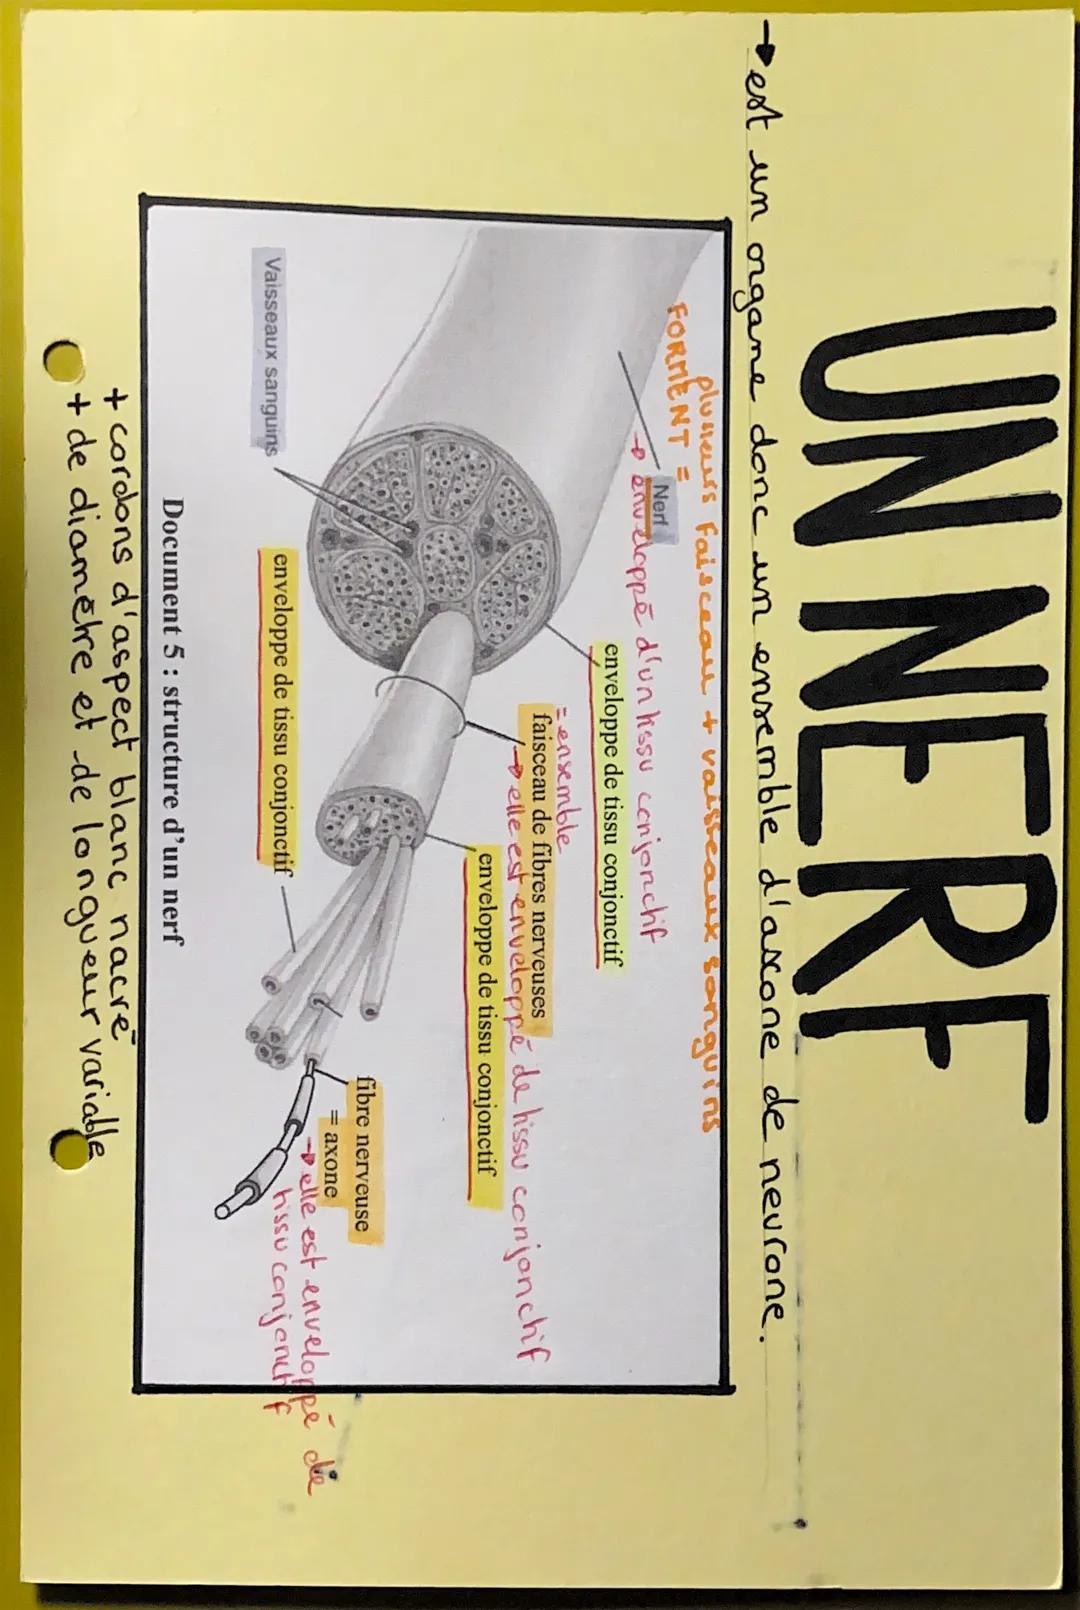 UN NERF
→ est un organe donc un ensemble d'axone de neurone.
plusieurs faisceau + vaisseaux sanguins
FORMENT =
Nerf
→ enveloppé d'un tissu conjonctif
enveloppe de tissu conjonctif
= ensemble
faisceau de fibres nerveuses
→ elle est enveloppé de tissu conjonctif
enveloppe de tissu conjonctif
fibre nerveuse
= axone
→ elle est enveloppé de
tissu conjonctif
Vaisseaux sanguins
enveloppe de tissu conjonctif
Document 5 : structure d'un nerf
+ cordons d'aspect blanc nacré
+ de diamètre et de longueur variable